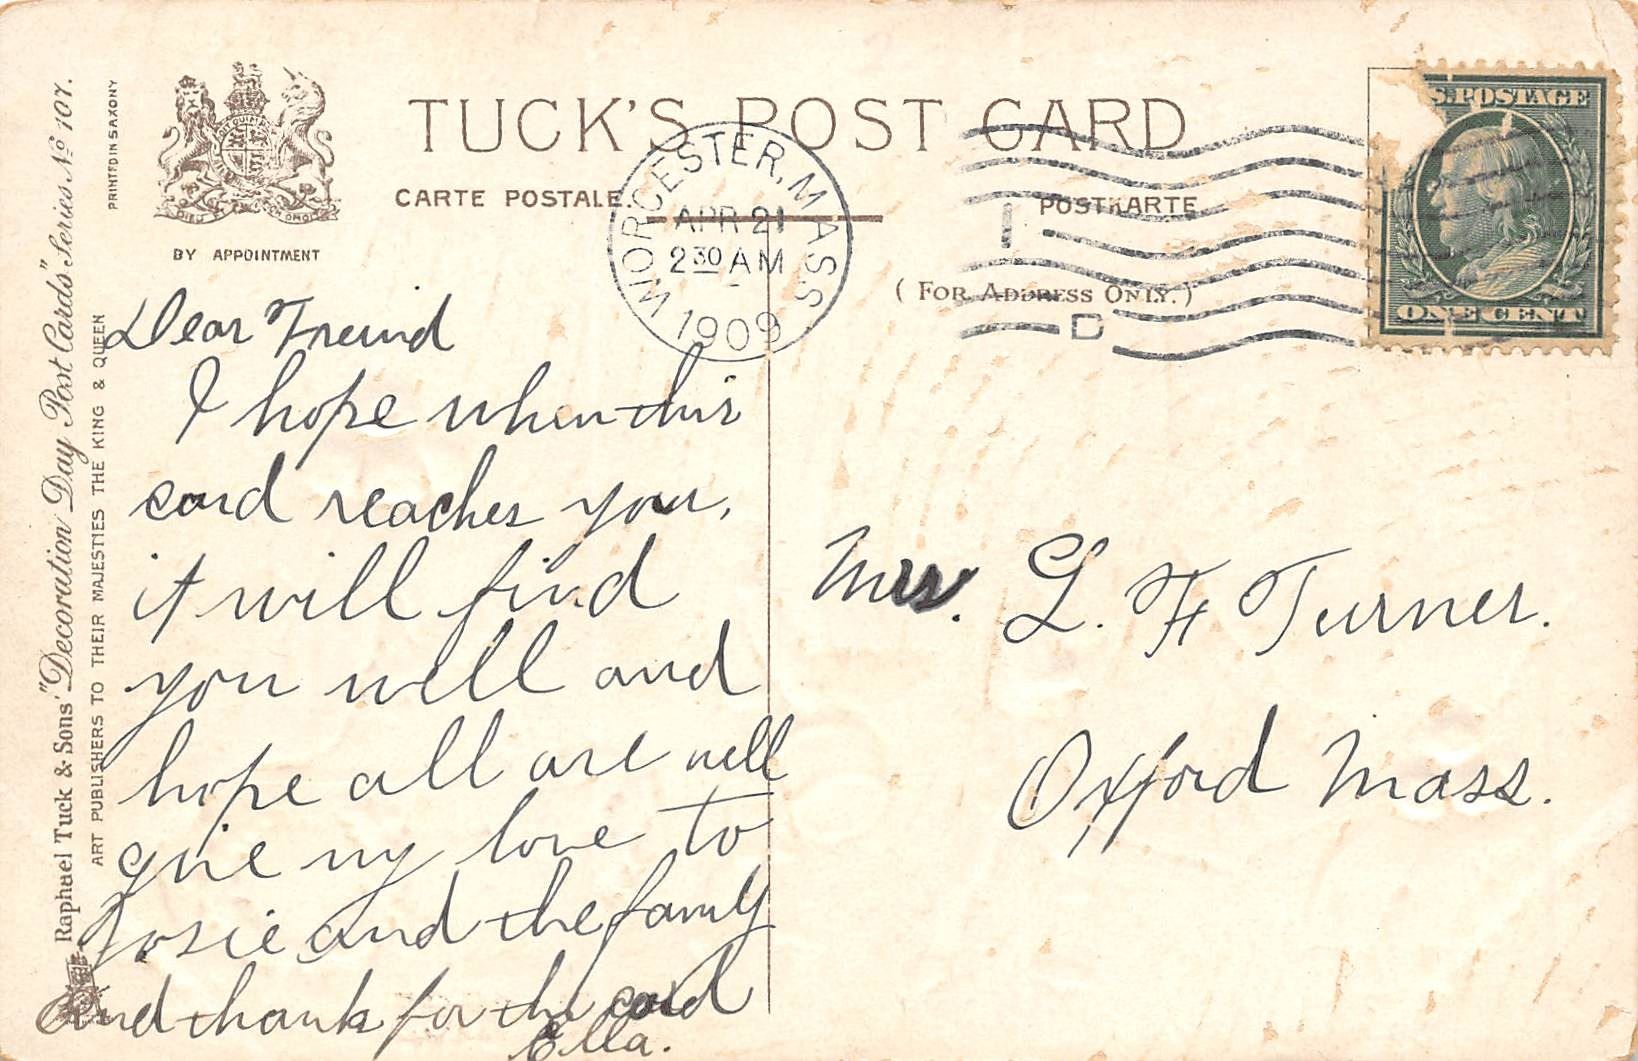 Raphael Tuck & Sons' "Decoration Day Post Cards" Series No 107.
ART PUBLISHERS TO THEIR MAJESTIES THE KING & QUEEN
PRINTED IN SAXONY
BY APPOINTMENT
TUCK'S POST CARD
CARTE POSTALE.
POSTKARTE
( FOR ADDRESS ONLY. )
WORCESTER, MASS
APR 21
2 30 AM
1909
1
D
S. POSTAGE
ONE CENT
Dear Freind
I hope when this
card reaches you,
it will find
you well and
hope all are well
give my love to
Josie and the family
and thank for the card
Ella.
Mrs. L. F. Turner.
Oxford Mass.